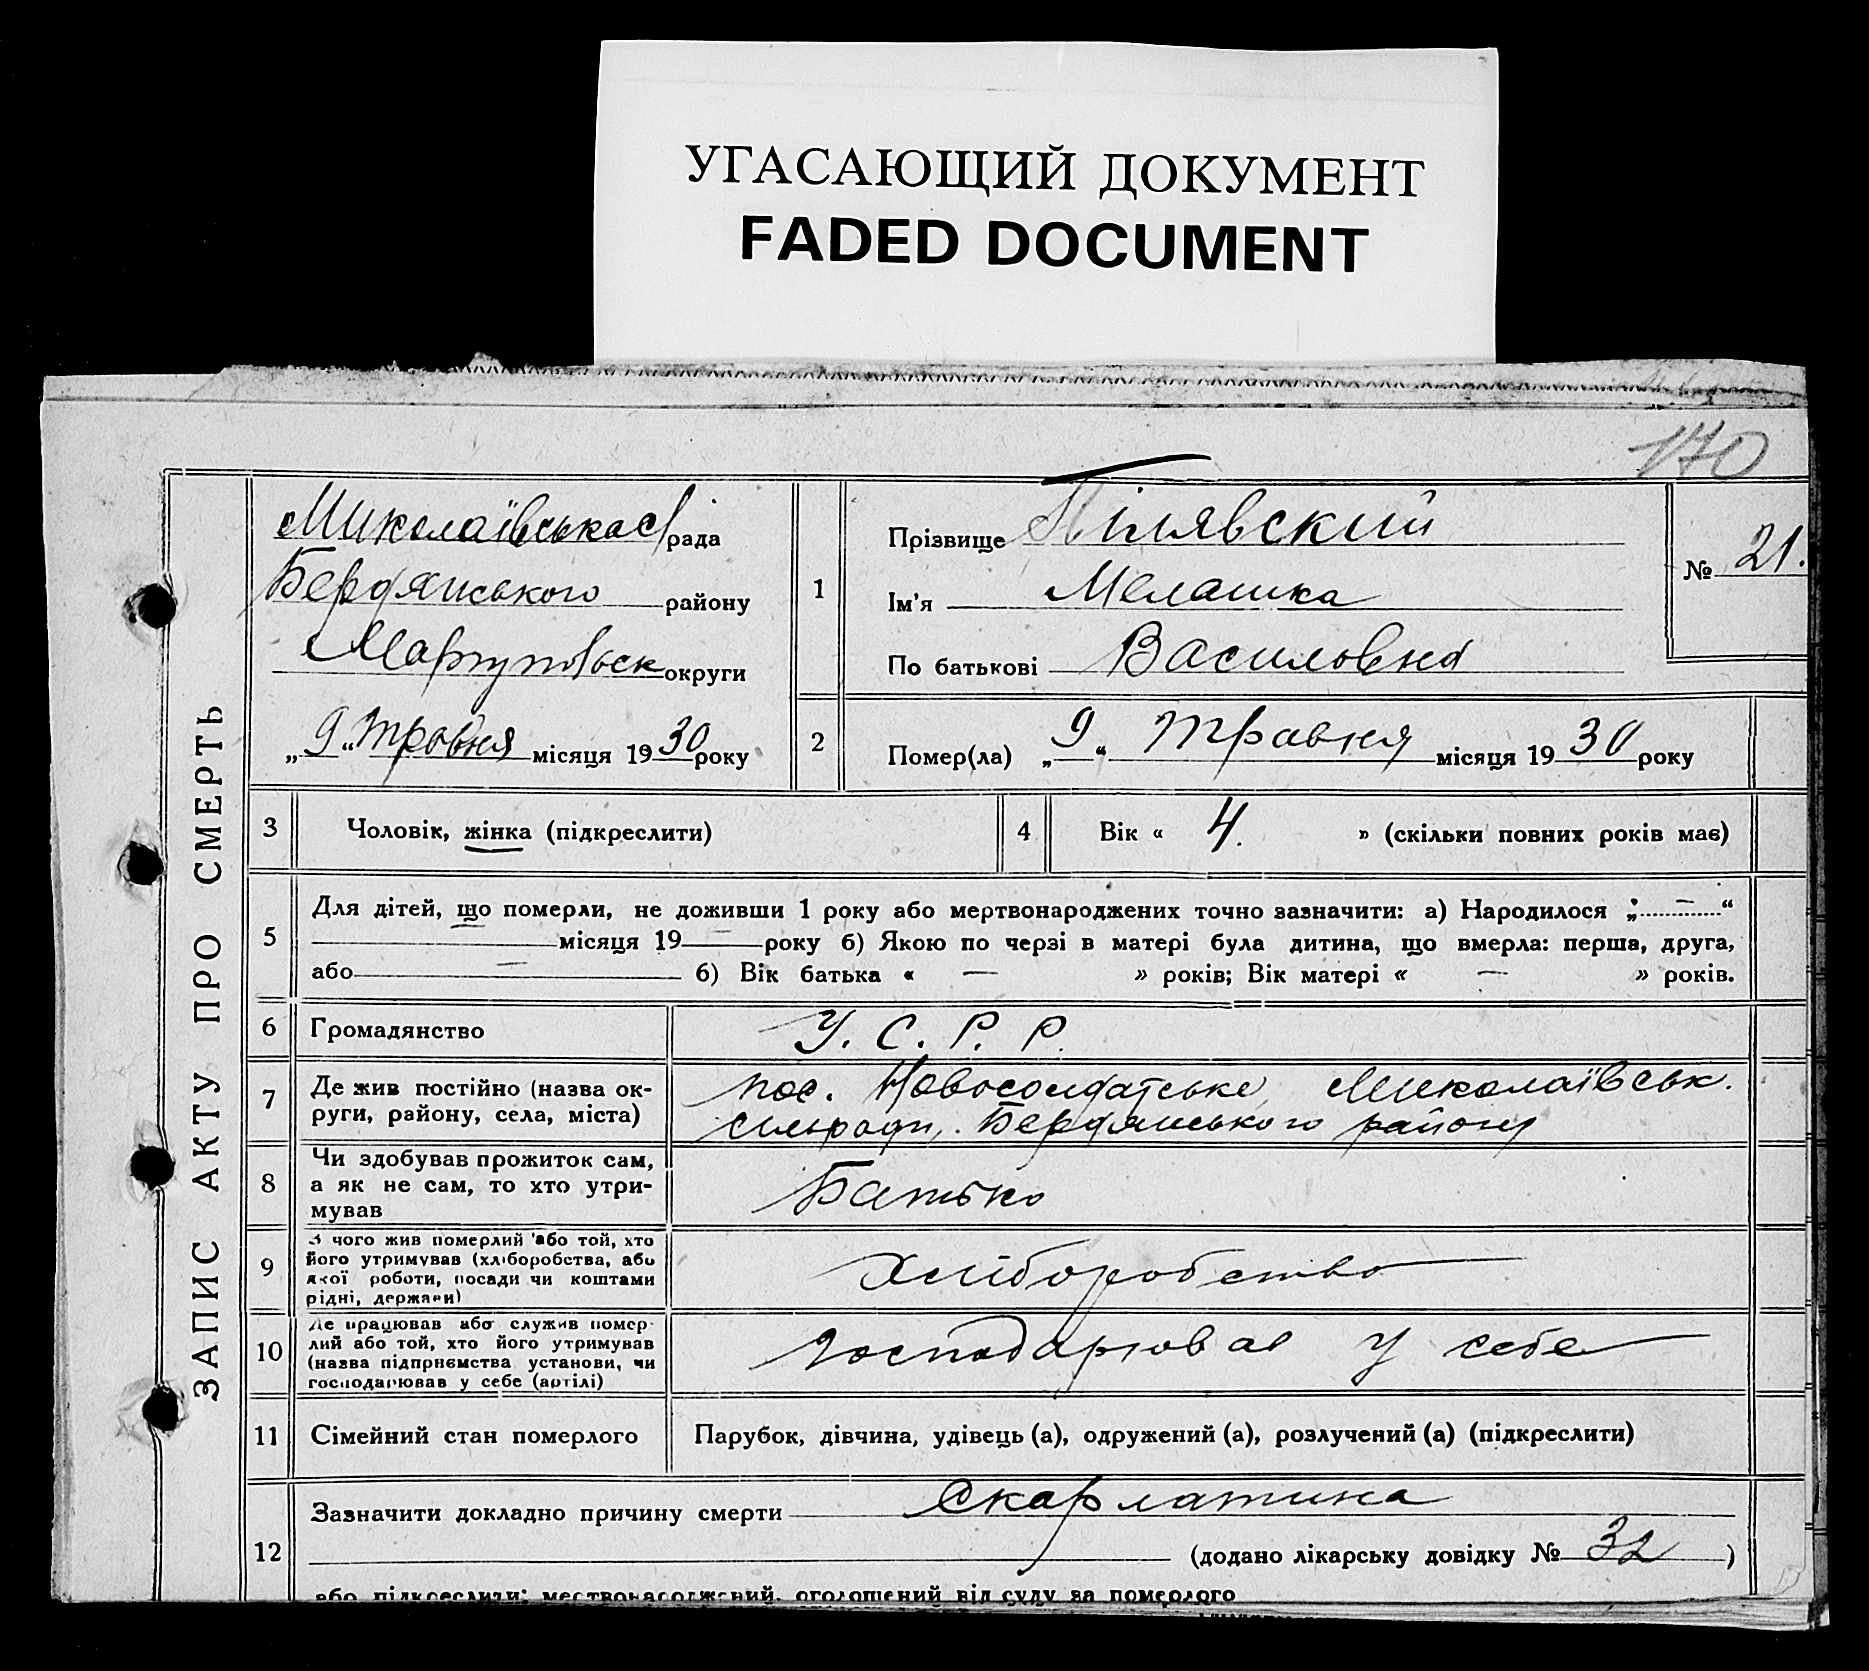 УГАСАЮЩИЙ ДОКУМЕНТ
FADED DOCUMENT
170
ЗАПИС АКТУ ПРО СМЕРТЬ
Миколаївська с/рада
Бердянського району
округи
„9“ травня місяця 1930 року
1
Прізвище Пілявский
Ім'я Мелашка
По батькові Василовна
№ 21.
2
Помер(ла) „9“ травня місяця 1930 року
3
Чоловік, жінка (підкреслити)
4
Вік « 4. » (скільки повних років має)
5
Для дітей, що померли, не доживши 1 року або мертвонароджених точно зазначити: а) Народилося „ — “
місяця 19 — року б) Якою по черзі в матері була дитина, що вмерла: перша, друга,
або — б) Вік батька « — » років; Вік матері « — » років.
6
Громадянство
У. С. Р. Р.
7
Де жив постійно (назва ок-
руги, району, села, міста)
пос. Новосолдатське, Миколаївськ.
сільради, Бердянського району
8
Чи здобував прожиток сам,
а як не сам, то хто утри-
мував
Батько
9
З чого жив померлий або той, хто
його утримував (хліборобства, або
якої роботи, посади чи коштами
рідні, держави)
Хліборобство
10
Де працював або служив помер-
лий або той, хто його утримував
(назва підприємства установи, чи
господарював у себе (артілі)
Господарював у себе
11
Сімейний стан померлого
Парубок, дівчина, удівець (а), одружений (а), розлучений (а) (підкреслити)
12
Зазначити докладно причину смерти Скарлатина
(додано лікарську довідку № 32)
або підкреслити: мертвонароджений, оголошений від суду за померлого